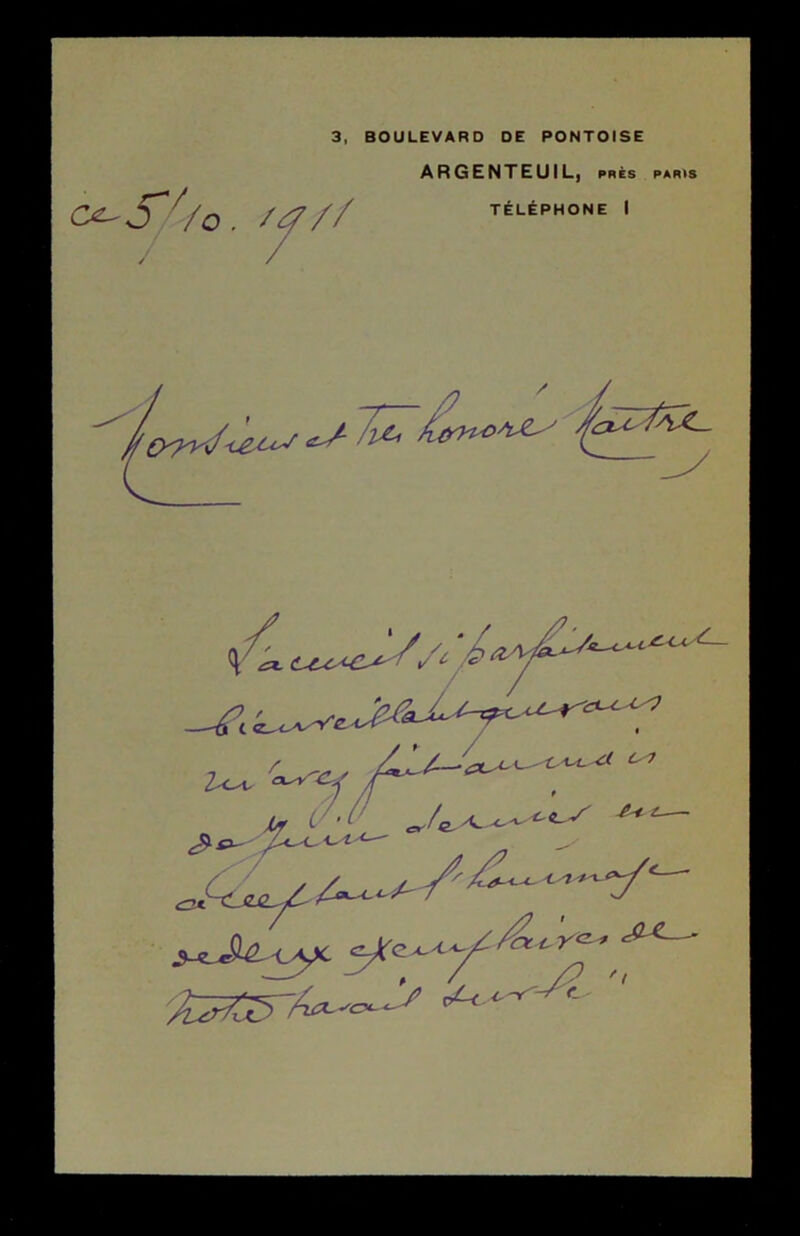 3, BOULEVARD DE PONTOISE
ARGENTEUIL, PRÈS PARIS
TÉLÉPHONE 1
ce 5/10. 1911
Monsieur et Tres honoré Maitre
L'accueil si parfaitement
bienveillant que vous
m'avez fait au mois
de Juin dernier en
acceptant l'hommage
de deux exemplaires de
notre travail sur le "